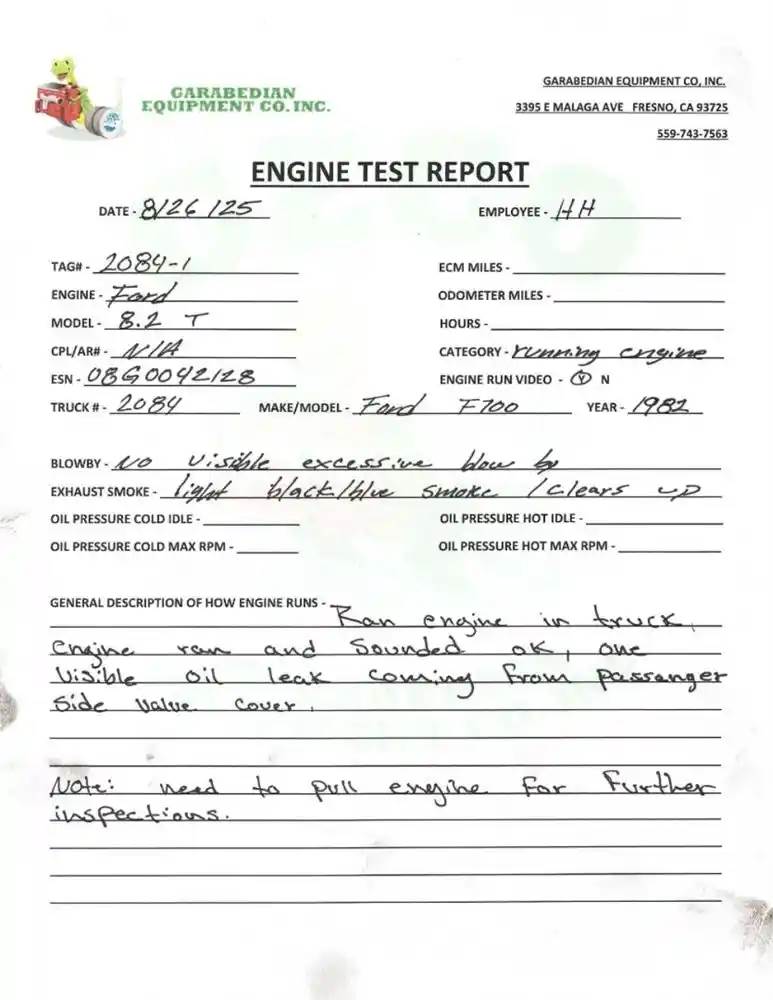 GARABEDIAN
EQUIPMENT CO. INC.
GARABEDIAN EQUIPMENT CO, INC.
3395 E MALAGA AVE FRESNO, CA 93725
559-743-7563
ENGINE TEST REPORT
DATE - 8/26/25 EMPLOYEE - HH
TAG# - 2084-1 ECM MILES -
ENGINE - Ford ODOMETER MILES -
MODEL - 8.2 T HOURS -
CPL/AR# - N/A CATEGORY - running engine
ESN - 08G0042128 ENGINE RUN VIDEO - Y N
TRUCK # - 2084 MAKE/MODEL - Ford F700 YEAR - 1982
BLOWBY - NO visible excessive blow by
EXHAUST SMOKE - light black/blue smoke / clears up
OIL PRESSURE COLD IDLE - OIL PRESSURE HOT IDLE -
OIL PRESSURE COLD MAX RPM - OIL PRESSURE HOT MAX RPM -
GENERAL DESCRIPTION OF HOW ENGINE RUNS - Ran engine in truck,
engine ran and sounded ok, one
visible oil leak coming from passenger
side valve cover.
Note: need to pull engine for further
inspections.